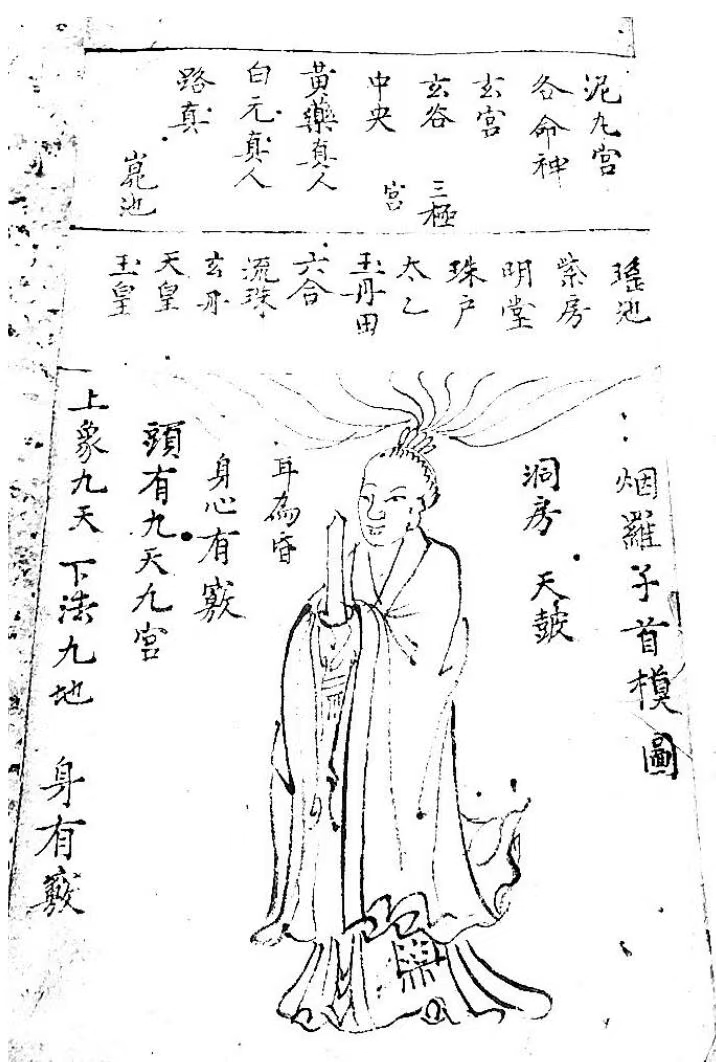 泥九宮
各命神
玄宮
玄谷 三極
中央 宮
黃藥真人
白元真人
路真
崑池
瑤池
紫房
明堂
珠户
太乙
玉丹田
六合
流珠
玄丹
天皇
玉皇
烟羅子首模圖
洞房 天皷
耳為
身心有竅
頭有九天九宮
上象九天 下法九地 身有竅